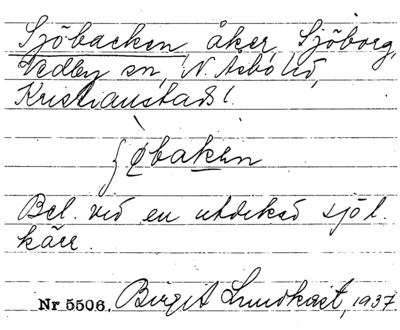 Sjöbacken, åker, Sjöborg,
Vedby sn, N. Åsbo hd,
Kristianstads l.
ʃø̀bakən
Bel. vid en utdikad sjö l.
kärr.
Nr 5506. Birgit Lundkvist, 1937